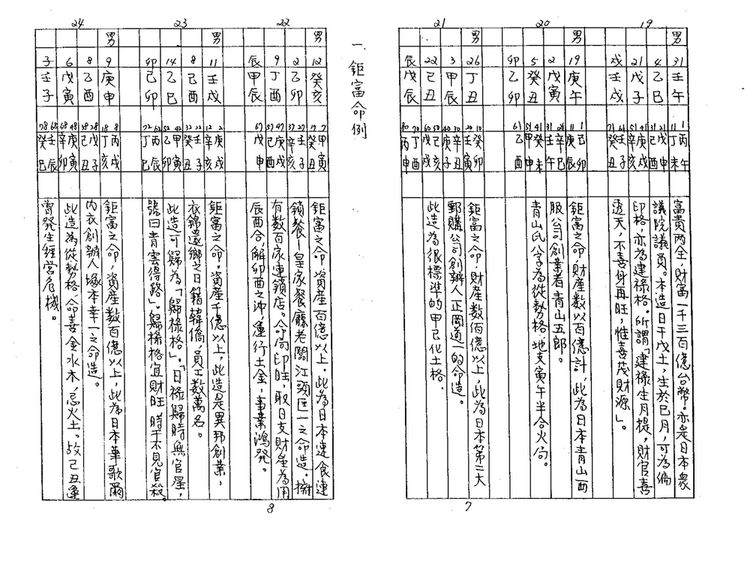 19
男 31 壬午
4 乙巳
戌 壬戌
富貴兩全，財富一千三百億台幣，亦是日本眾
議院議員。本造日干戊土，生於巳月，可為偏
印格，亦為建祿格。所謂「建祿生月提，財官喜
透天，不喜身再旺，惟喜茂財源」。
20
男 19 庚午
2 戊寅
5 癸丑
卯 乙卯
鉅富之命，財產數以百億計，此為日本青山西
服公司創業者青山五郎。
青山氏八字為從勢格，地支寅午半合火旬。
21
男 26 丁丑
3 甲辰
22 己丑
辰 戊辰
鉅富之命，財產數佰億以上，此為日本第二大
郵購公司創辦人正岡道一的命造。
此造為很標準的甲己化土格。
7
一、鉅富命例
22
男 12 癸亥
2 乙卯
9 丁酉
辰 甲辰
鉅富之命，資產百億以上。此為日本連食連
鎖餐—皇家餐廳老闆江頭匡一之命造，擁
有數百家連鎖店。命局印旺，取日支財星為用
辰酉合，解卯酉之沖，運行土金，事業鴻發。
23
男 11 壬戌
8 己酉
14 乙巳
卯 己卯
鉅富之命，資產千億以上，此造是異邦創業，
衣錦返鄉之日籍韓僑，員工數萬名。
此造可歸為「歸祿格」。「日祿歸時無官星，
號曰青雲得路」。歸祿格宜財旺，時干不見官殺。
24
男 9 庚申
8 乙酉
6 戊寅
子 壬子
鉅富之命，資產數百億以上，此為日本華歌爾
內衣創辦人塚本幸一之命造。
此造為從勢格，命喜金水木，忌火土。故己丑逢
冐發生經營危機。
8